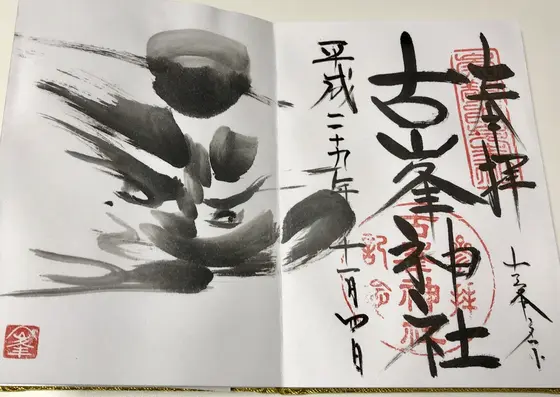 奉拝
古峯神社
平成二十九年十一月四日
参拝
古峯神社
記念